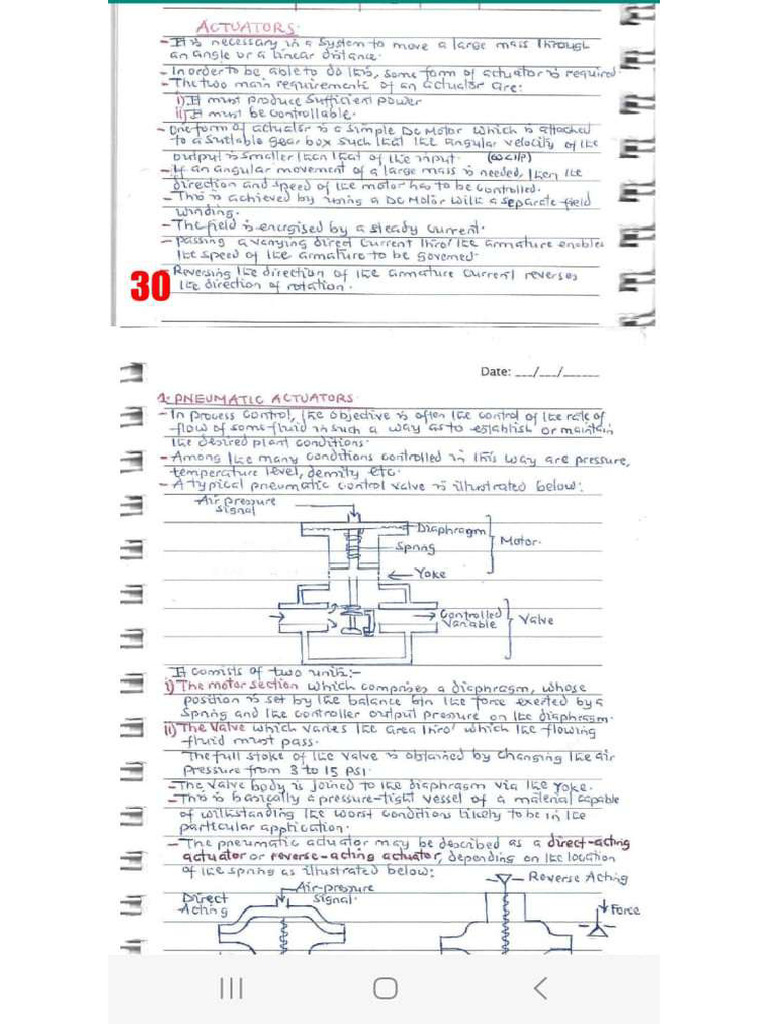 ACTUATORS.
- It is necessary in a system to move a large mass through
an angle or a linear distance.
- In order to be able to do this, some form of actuator is required.
- The two main requirements of an actuator are:
i) It must produce sufficient power
ii) It must be controllable.
- One form of actuator is a simple DC Motor which is attached
to a suitable gear box such that the angular velocity of the
output is smaller then that of the input.
- If an angular movement of a large mass is needed, then the
direction and speed of the motor has to be controlled.
- This is achieved by using a DC Motor with a separate field
winding.
- The field is energised by a steady current.
- Passing a varying direct current thro' the armature enables
the speed of the armature to be governed.
- Reversing the direction of the armature current reverses
the direction of rotation.
30
Date: __/__/____
1. PNEUMATIC ACTUATORS
- In process control, the objective is often the control of the rate of
flow of some fluid in such a way as to establish or maintain
the desired plant conditions.
- Among the many conditions controlled in this way are pressure,
temperature level, density etc.
- A typical pneumatic control valve is illustrated below:
Air pressure
signal
Diaphragm
Spring
Motor.
Yoke
Controlled
Variable
Valve
It consists of two units:-
i) The motor section which comprises a diaphragm, whose
position is set by the balance btn the force exerted by a
spring and the controller output pressure on the diaphragm.
ii) The Valve which varies the area thro' which the flowing
fluid must pass.
The full stoke of the valve is obtained by changing the air
pressure from 3 to 15 PSI.
- The valve body is joined to the diaphragm via the yoke.
- This is basically a pressure-tight vessel of a material capable
of withstanding the worst conditions likely to be in the
particular application.
- The pneumatic actuator may be described as a direct-acting
actuator or reverse-acting actuator, depending on the location
of the spring as illustrated below:
Direct
Acting
Air-pressure
signal.
Reverse Acting
Force